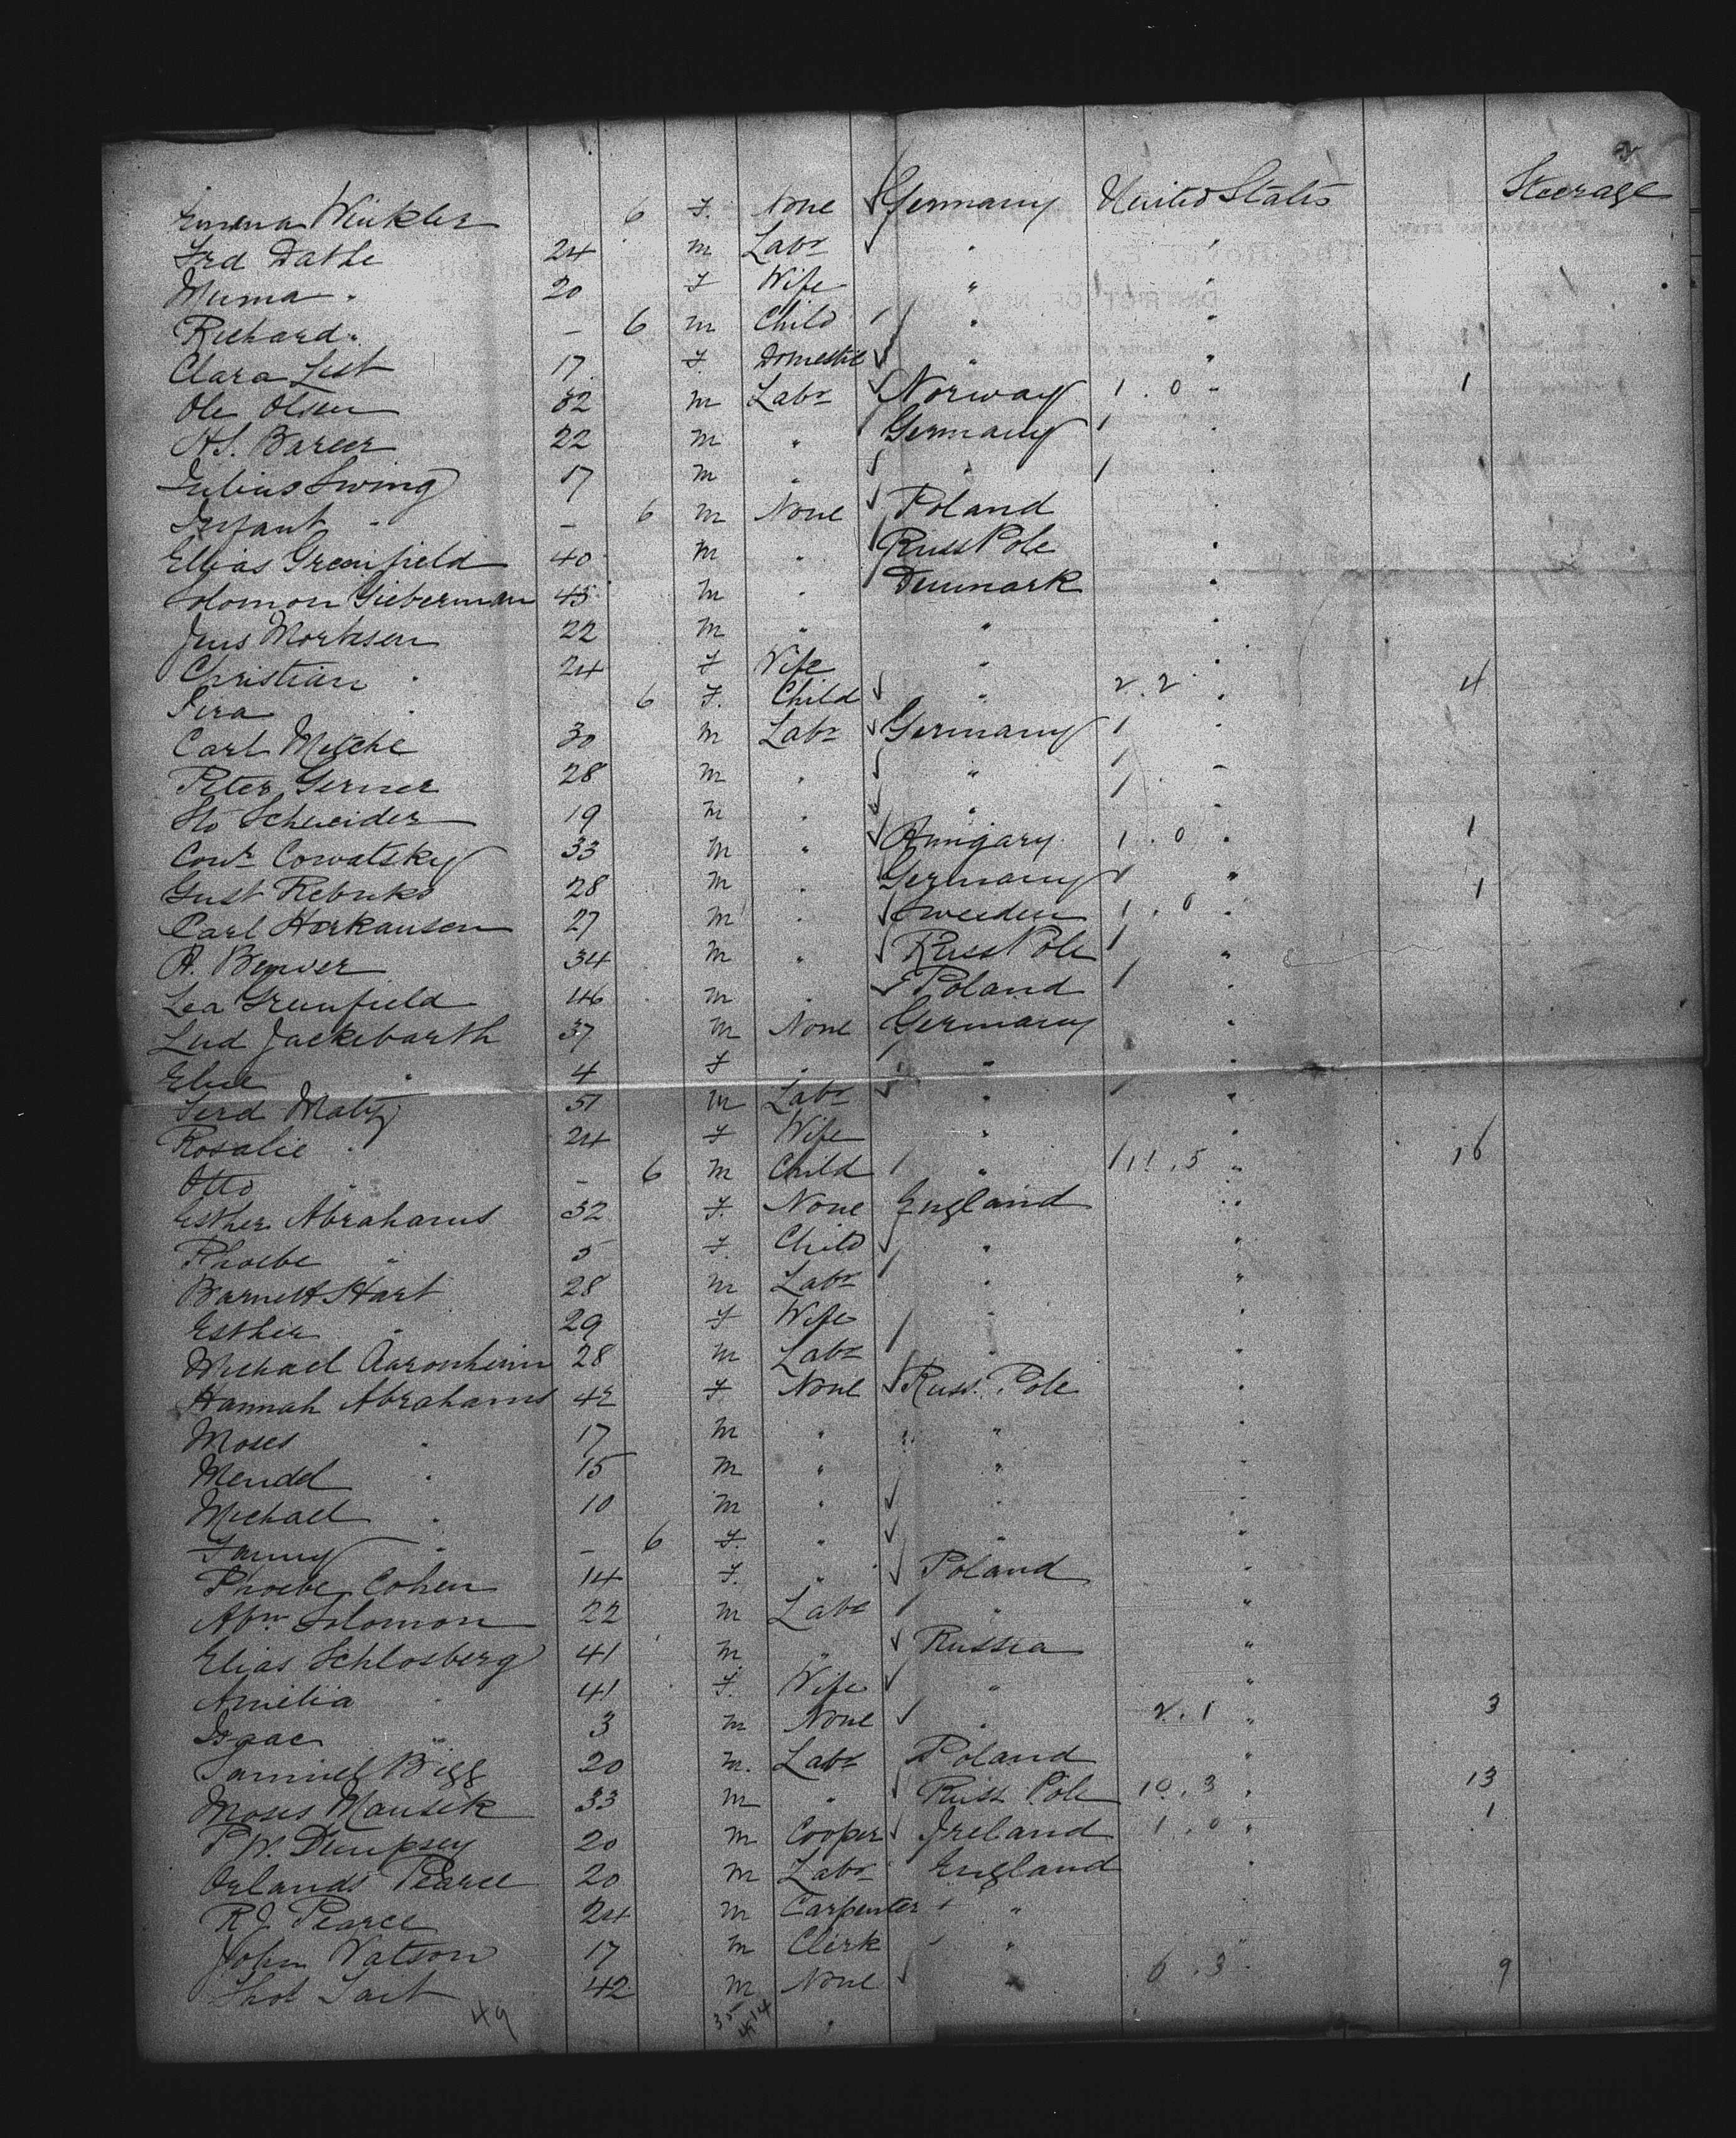 Emma Winkler 6 F. None Germany United States Steerage
Fred Dathe 24 m Labr " "
Muma " 20 F Wife " "
Richard " — 6 m Child " "
Clara List 17 F. Domestic " "
Ole Olsen 32 m Labr Norway 1 . 0 " 1
H.S. Barcer 22 m " Germany 1 "
Julius Swing 17 m " " 1 "
Infant " — 6 m None Poland "
Ellias Greenfield 40 m " Russ Pole "
Solomon Gieberman 45 m " Denmark "
Jens Mortesen 22 m " " "
Christian " 24 F Wife " "
6 F. Child " 2 . 2 " 4
Carl 30 m Labr Germany 1 "
Peter Gerner 28 m " " 1 "
Schneider 19 m " " 1 "
Cowatsky 33 m " Hungary 1 . 0 " 1
Gust Rebuks 28 m " Germany 1 " 1
Carl Horkausen 27 m " Sweeden 1 . 0 "
A. 34 m " Russ Pole 1 "
Lea Grunfield 46 m " Poland 1 "
Lud Jackebarth 37 m None Germany "
Elise " 4 F " " "
Ferd Matz 51 m Labr " "
Rosalie " 24 F Wife " "
Otto " — 6 m Child " 11 . 5 " 16
Esther Abrahams 32 F. None England "
Phoebe " 5 F. Child " "
Barnett Hart 28 m Labr " "
Esther " 29 F Wife " "
Michael Aaronheim 28 m Labr " "
Hannah Abrahams 42 F None Russ. Pole "
Moses " 17 m " " "
Mendel " 15 m " " "
Michael " 10 m " " "
Fanny " — 6 F. " " "
Phoebe Cohen 14 F. " Poland "
Abm Solomon 22 m Labr " "
Elias Schlosberg 41 m " Russia "
Amelia " 41 F. Wife " "
Isaac " 3 m None " 2 . 1 " 3
Samuel Bigg 20 m. Labr Poland "
Moses Mausek 33 m " Russ Pole 10 . 3 " 13
P.W. Dempsey 20 m Cooper Ireland 1 . 0 " 1
Orlando Pearce 20 m Labr England "
R J Pearce 24 m Carpenter "
John Watson 17 m Clerk " "
Thos Tait 42 m None " 6 . 3 " 9
49 35 14